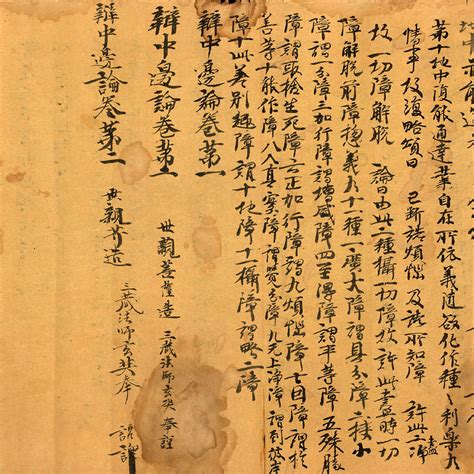 第十地中復能通達業自在所依義隨欲化作種〻利樂有
情事故復略頌曰 已斷諸煩惱 及諸所知障 許此二盡
故一切障解脫 論曰由此二種攝一切障故許此盡時一切
障解脫前障總義有十一種一廣大障謂具分障二狹小
障謂一分障三加行障謂增盛障四至得障謂平等障五殊勝
障謂取捨生死障六正加行障謂九煩惱障七因障謂於
善等十能作障八入真實障謂覺分障九无上淨障謂到彼岸
障十此差別趣障謂十地障十一攝障謂略二障
辯中邊論卷第一
辯中邊論卷第 世親菩薩造 三藏法師玄奘奉詔譯
辯中邊論卷第二 世親菩薩造 三藏法師玄奘奉 詔譯